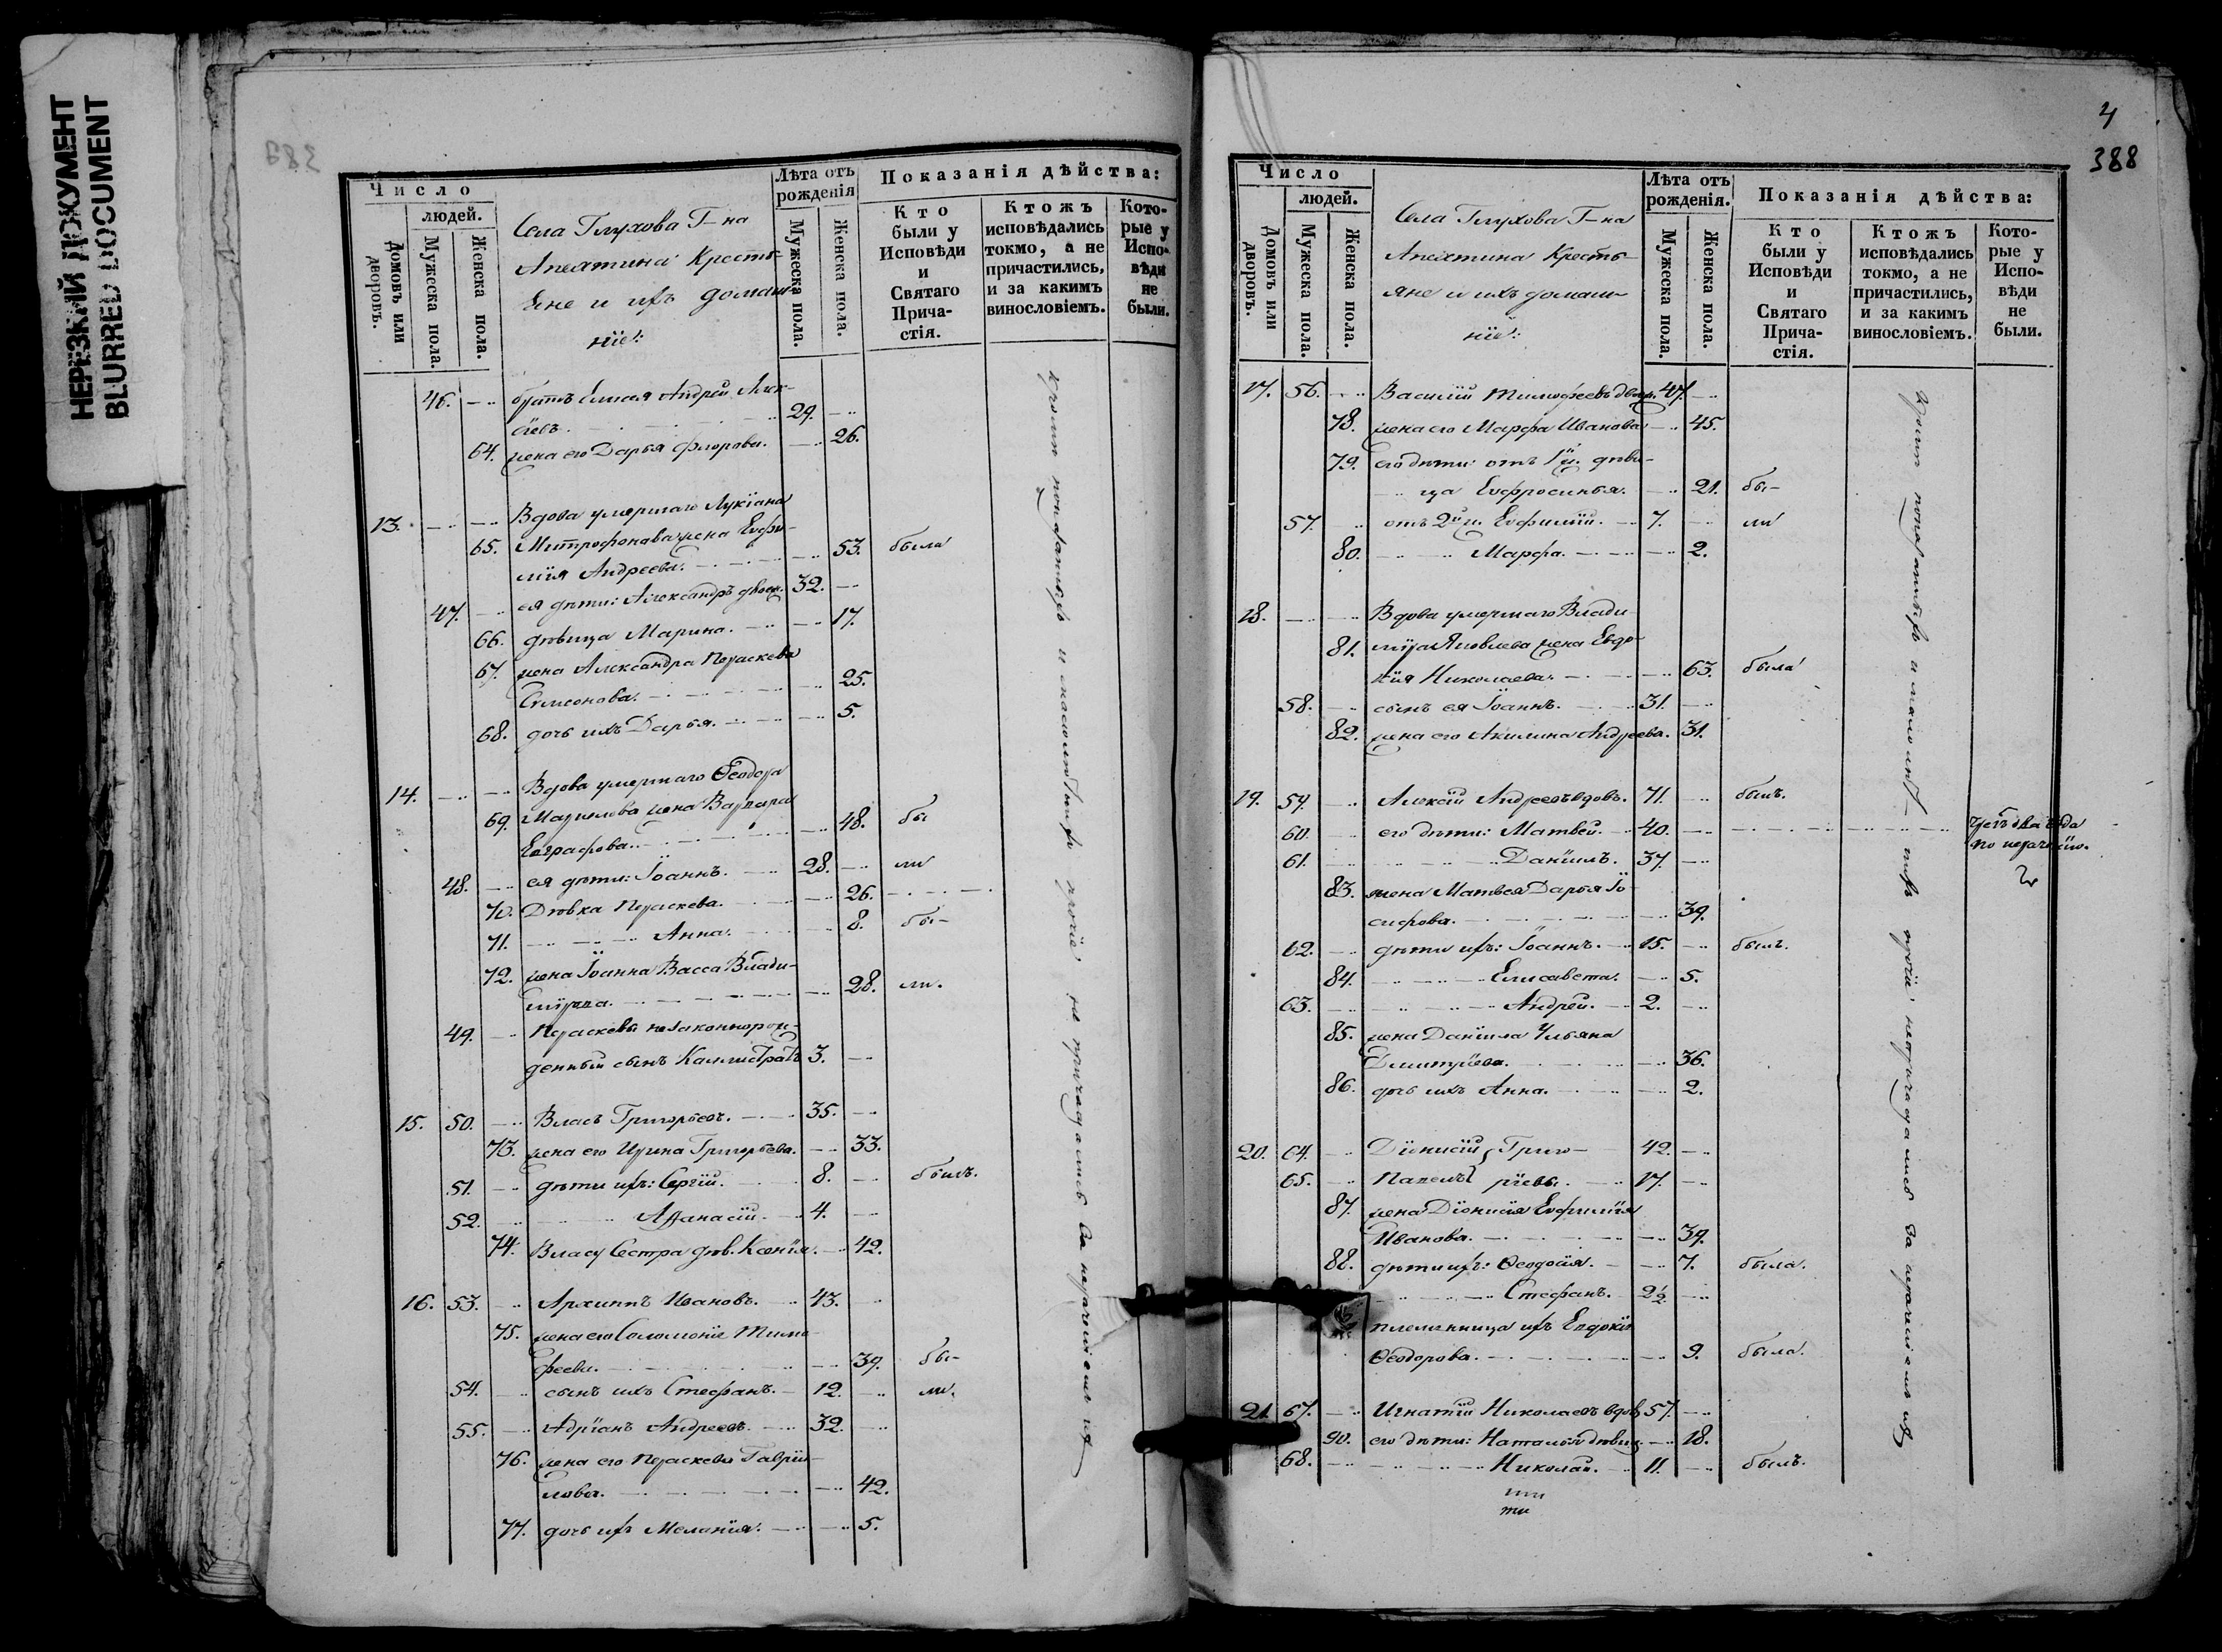 НЕРЕЗКИЙ ДОКУМЕНТ
BLURRED DOCUMENT
Число
людей.
Домовъ или дворовъ.
Мужеска пола.
Женска пола.
Села Глухова Г–на
Апехтина Кресть-
яне и ихъ домаш-
ніе:
Лѣта отъ рожденія
Мужеска пола.
Женска пола.
Показанія дѣйства:
Кто были у Исповѣди и Святаго Прича-стія.
Ктожъ исповѣдались токмо, а не причастились, и за какимъ винословіемъ.
Кото-рые у Испо-вѣди не были.
46. братъ Андрей Алек-
сѣевъ. 29.
64. жена его Дарья Флорова. 26.
13. Вдова умершаго Лукіана
65. Митрофонава жена Евфи-
мія Андреева. 53. была
47. ея дѣти: Александръ 32.
66. дѣвица Марина. 17.
67. жена Александра Параскева
Симеонова. 25.
68. дочь ихъ Дарья. 5.
14. Вдова умершаго Ѳеодора
69. жена Варвара
Евграфова. 48. бы
48. ея дѣти: Іоаннъ. 28. ли
70. Дѣвка Параскева. 26.
71. Анна. 8. бы-
72. жена Іоанна Васса Влади-
мірова. 28. ли.
49. Параскевы незаконнорож-
денный сынъ Каллистратъ 3.
15. 50. Власъ Григорьевъ. 35.
73. жена его Ирина Григорьева. 33.
51. дѣти ихъ: Сергій. 8. былъ.
52. Аѳанасій. 4.
74. Власу Сестра дѣв. Ксенія. 42.
16. 53. Архиппъ Ивановъ. 43.
75. жена его Соломонія Тимо-
феева. 39. бы-
54. сынъ ихъ Стефанъ. 12. ли.
55. Адріанъ Андреевъ. 32.
76. жена его Параскева Гаврі-
лова. 42.
77. дочь ихъ Меланія. 5.
4
388
Число
людей.
Домовъ или дворовъ.
Мужеска пола.
Женска пола.
Села Глухова Г–на
Апехтина Кресть-
яне и ихъ домаш-
ніе:
Лѣта отъ рожденія.
Мужеска пола.
Женска пола.
Показанія дѣйства:
Кто были у Исповѣди и Святаго Прича-стія.
Ктожъ исповѣдались токмо, а не причастились, и за какимъ винословіемъ.
Кото-рые у Испо-вѣди не были.
17. 56. Василій Тимофеевъ 47.
78. жена его Марфа Иванова 45.
79. его дѣти: отъ 1й ж. дѣви-
ца Евфросинья. 21. бы-
57. отъ 2й ж. Евфимій. 7. ли
80. Марфа. 2.
18. Вдова умершаго Влади-
81. міра Яковлева жена Евдо-
кія Николаева. 63. была
58. сынъ ея Іоаннъ. 31.
82. жена его Акилина Андреева. 31.
19. 59. Алексій Андреевъ вдовъ. 71. былъ.
60. его дѣти: Матвей. 40.
по нераченію.
61. Даніилъ. 37.
83. жена Матвея Дарья Іо-
сифова. 39.
62. дѣти ихъ: Іоаннъ. 15. былъ.
84. Елисавета. 5.
63. Андрей. 2.
85. жена Даніила Ульяна
Димитріева. 36.
86. дочь ихъ Анна. 2.
20. 64. Діонисій Григо- 42.
65. Павелъ рьевы. 17.
87. жена Діонисія Евфимія
Иванова. 39.
88. дѣти ихъ: Ѳеодосія. 7. была.
Стефанъ. 2½
племянница ихъ Евдокія
Ѳеодорова. 9. была.
21 67. Игнатій Николаевъ вдов 57.
90. его дѣти: Наталья дѣвиц. 18.
68. Николай. 11. былъ.